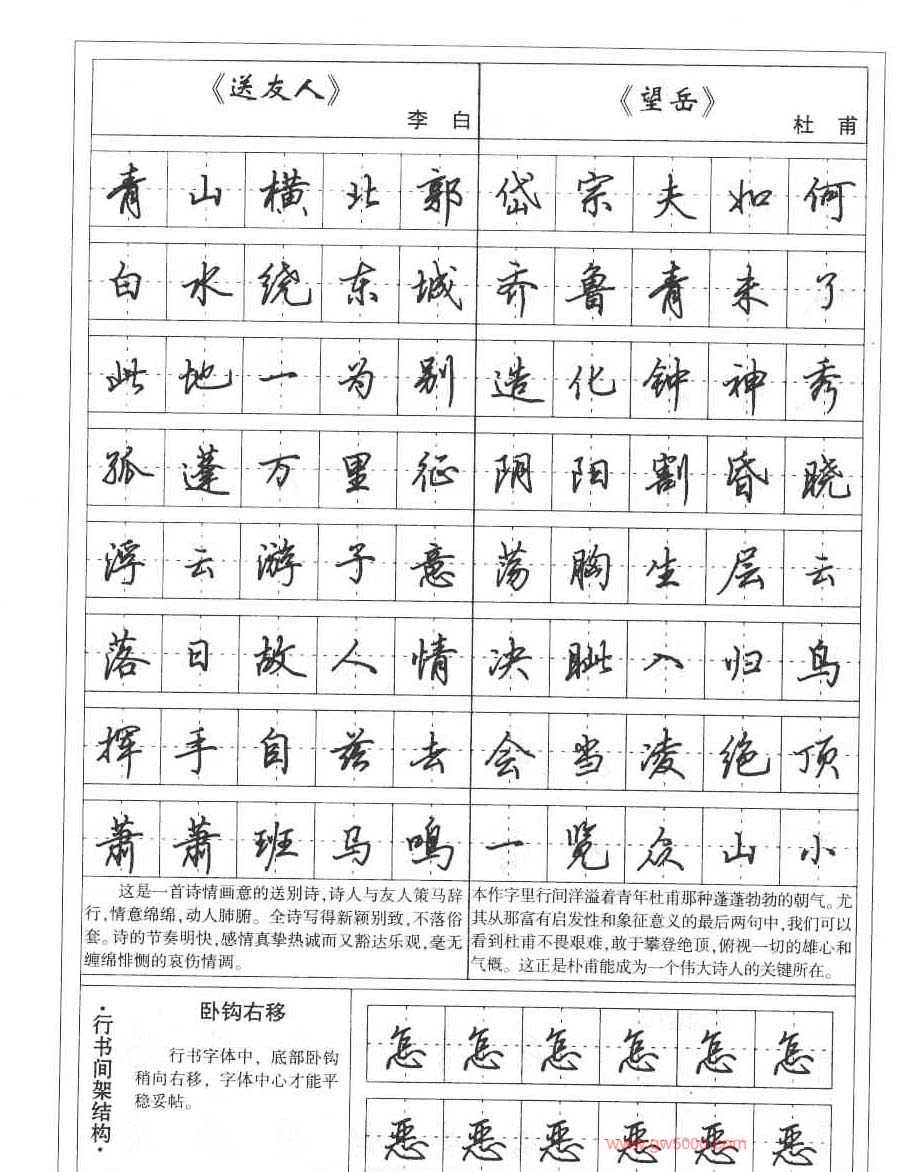 《送友人》
李 白
青山横北郭
白水绕东城
此地一为别
孤蓬万里征
浮云游子意
落日故人情
挥手自兹去
萧萧班马鸣
这是一首诗情画意的送别诗，诗人与友人策马辞
行，情意绵绵，动人肺腑。全诗写得新颖别致，不落俗
套。诗的节奏明快，感情真挚热诚而又豁达乐观，毫无
缠绵悱恻的哀伤情调。
《望岳》
杜 甫
岱宗夫如何
齐鲁青未了
造化钟神秀
阴阳割昏晓
荡胸生层云
决眦入归鸟
会当凌绝顶
一览众山小
本作字里行间洋溢着青年杜甫那种蓬蓬勃勃的朝气。尤
其从那富有启发性和象征意义的最后两句中，我们可以
看到杜甫不畏艰难，敢于攀登绝顶，俯视一切的雄心和
气概。这正是朴甫能成为一个伟大诗人的关键所在。
·行书间架结构·
卧钩右移
行书字体中，底部卧钩
稍向右移，字体中心才能平
稳妥帖。
怎怎怎怎怎怎
恶恶恶恶恶恶
www.gw5000.com